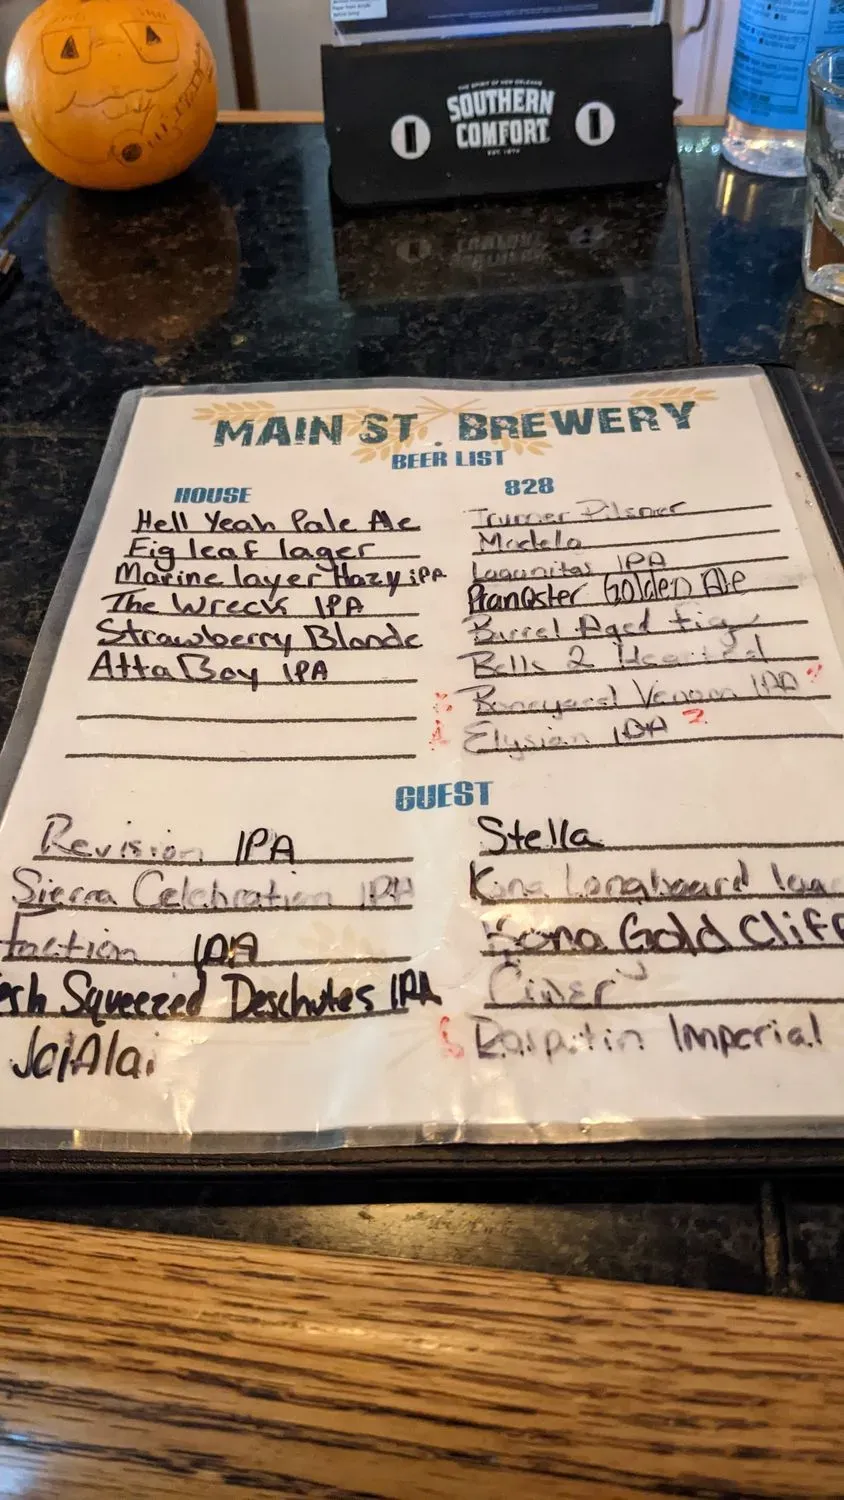 THE SPIRIT OF NEW ORLEANS
SOUTHERN
COMFORT
EST. 1874
MAIN ST. BREWERY
BEER LIST
HOUSE
Hell Yeah Pale Ale
Fig leaf lager
Marine layer Hazy iPA
The Wreck IPA
Strawberry Blonde
Atta Boy IPA
828
Trumer Pilsner
Modelo
Lagunitas IPA
PranQster Golden Ale
Barrel Aged Fig
Bells 2 Hearted
Boneyard Venom IPA ?
Elysian IPA 2
GUEST
Revision IPA
Sierra Celebration IPA
Faction IPA
esh Squeezed Deschutes IPA
JaiAlai
Stella
Kona Longboard laa
Kona Gold Cliff
Cider
Rasputin Imperial